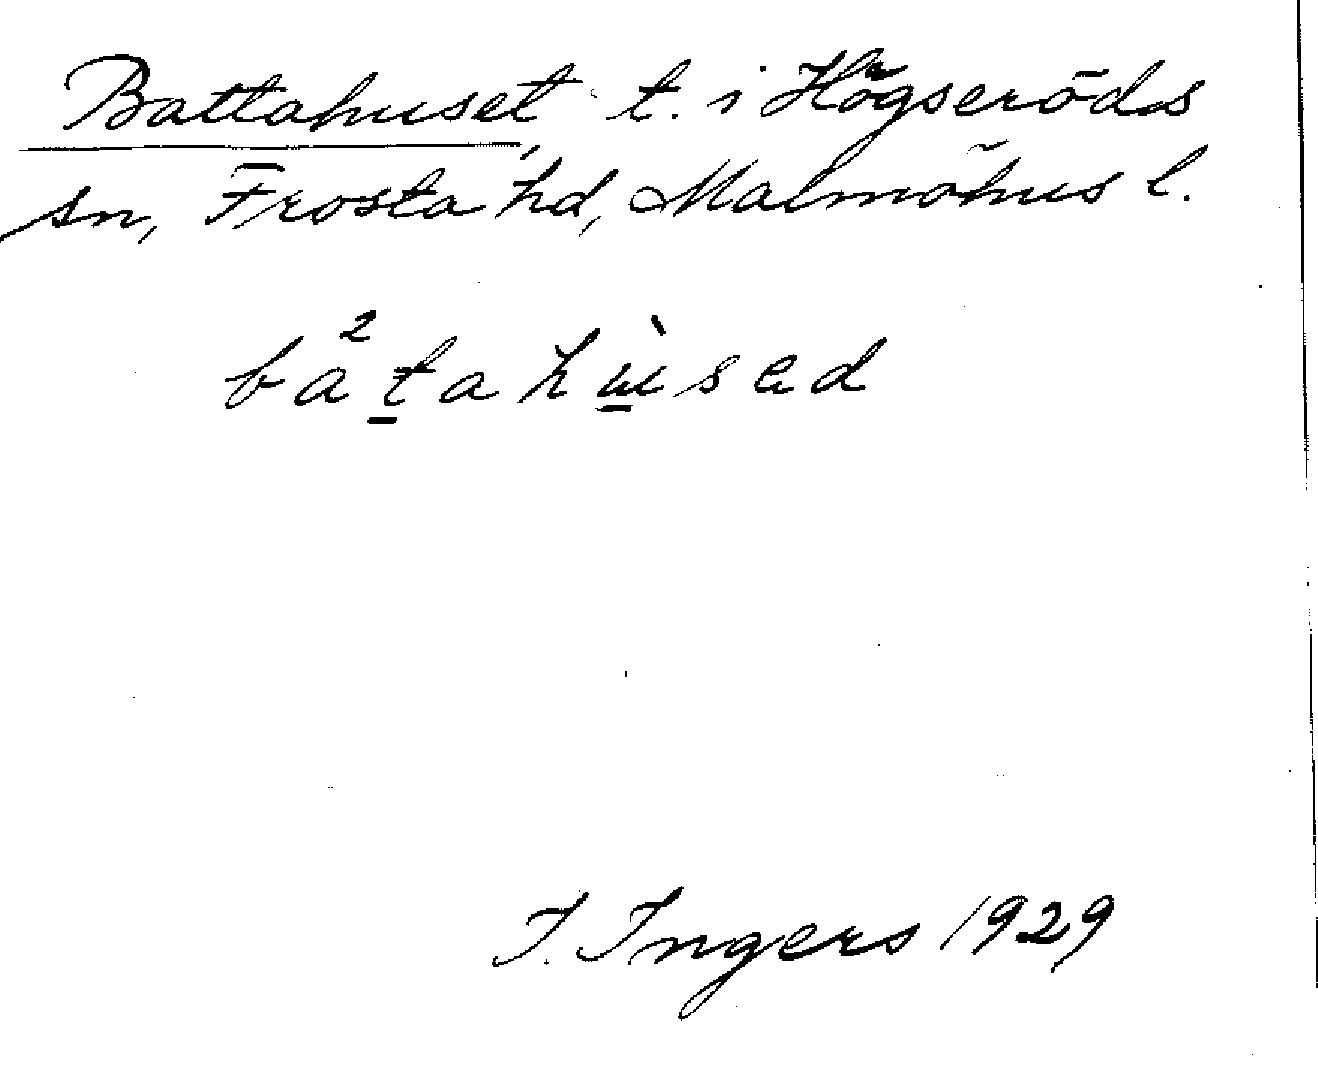 Battahuset, t. i Högseröds
sn, Frosta hd, Malmöhus l.
ba²t̲ahɯ̲̀sad
I. Ingers 1929